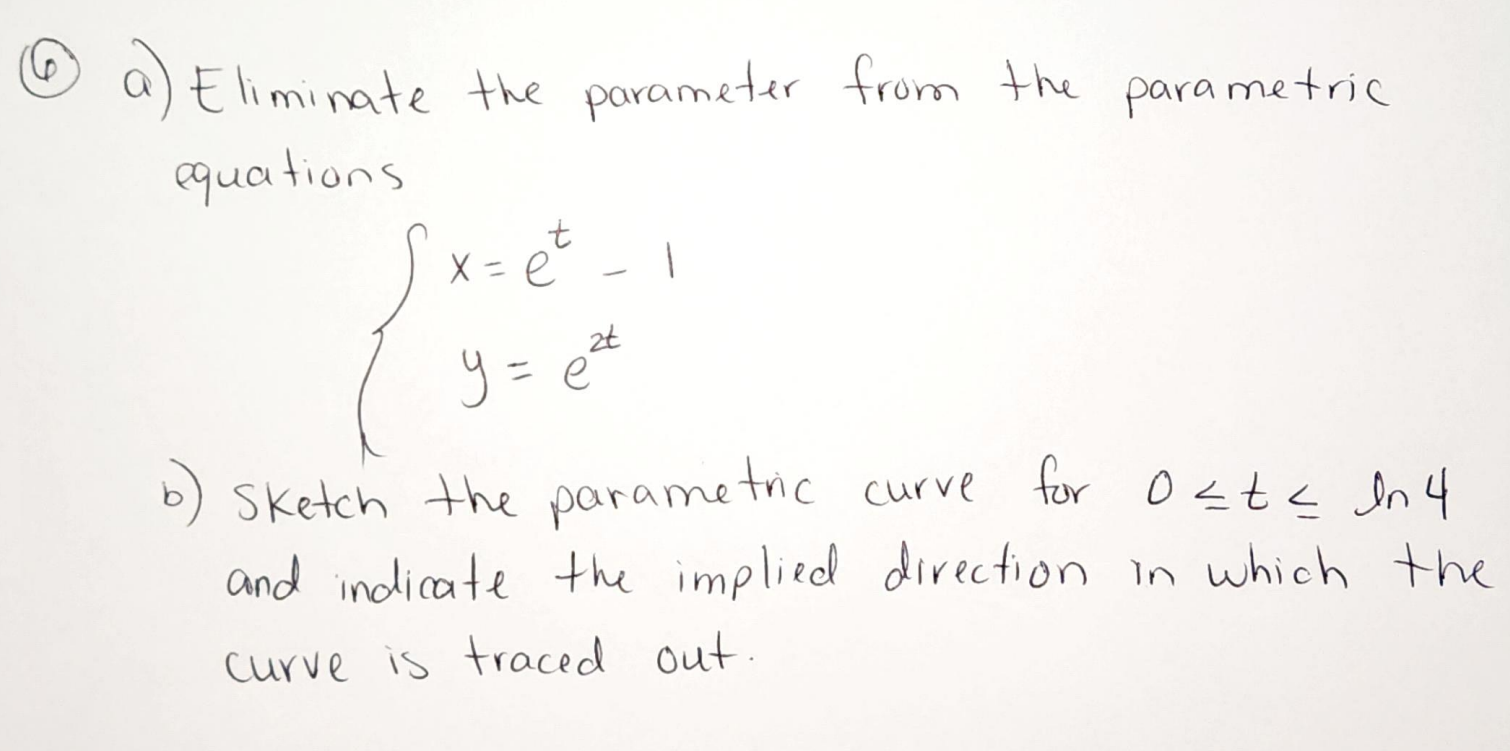 ⑥ a) Eliminate the parameter from the parametric
equations
x = e^t - 1
y = e^2t
b) Sketch the parametric curve for 0 ≤ t ≤ ln 4
and indicate the implied direction in which the
curve is traced out.